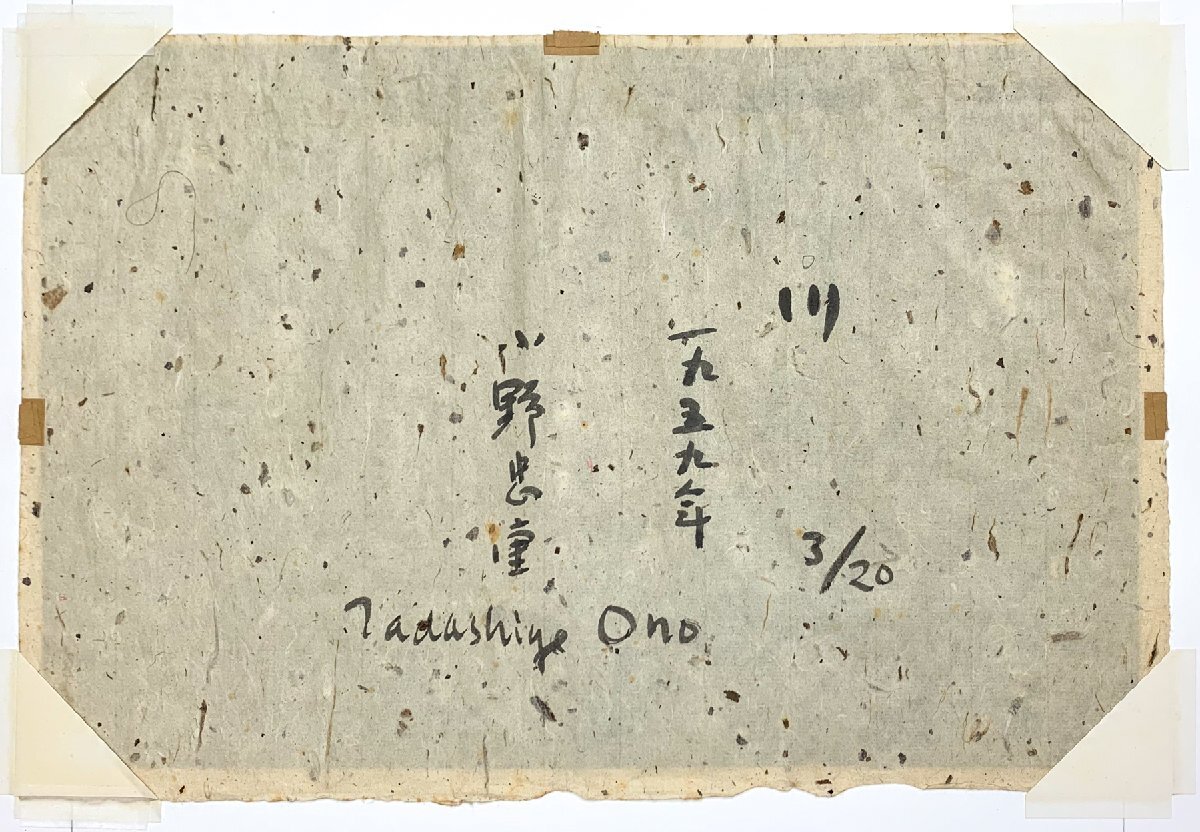 川
一九五九年
小野忠重
3/20
Tadashige Ono